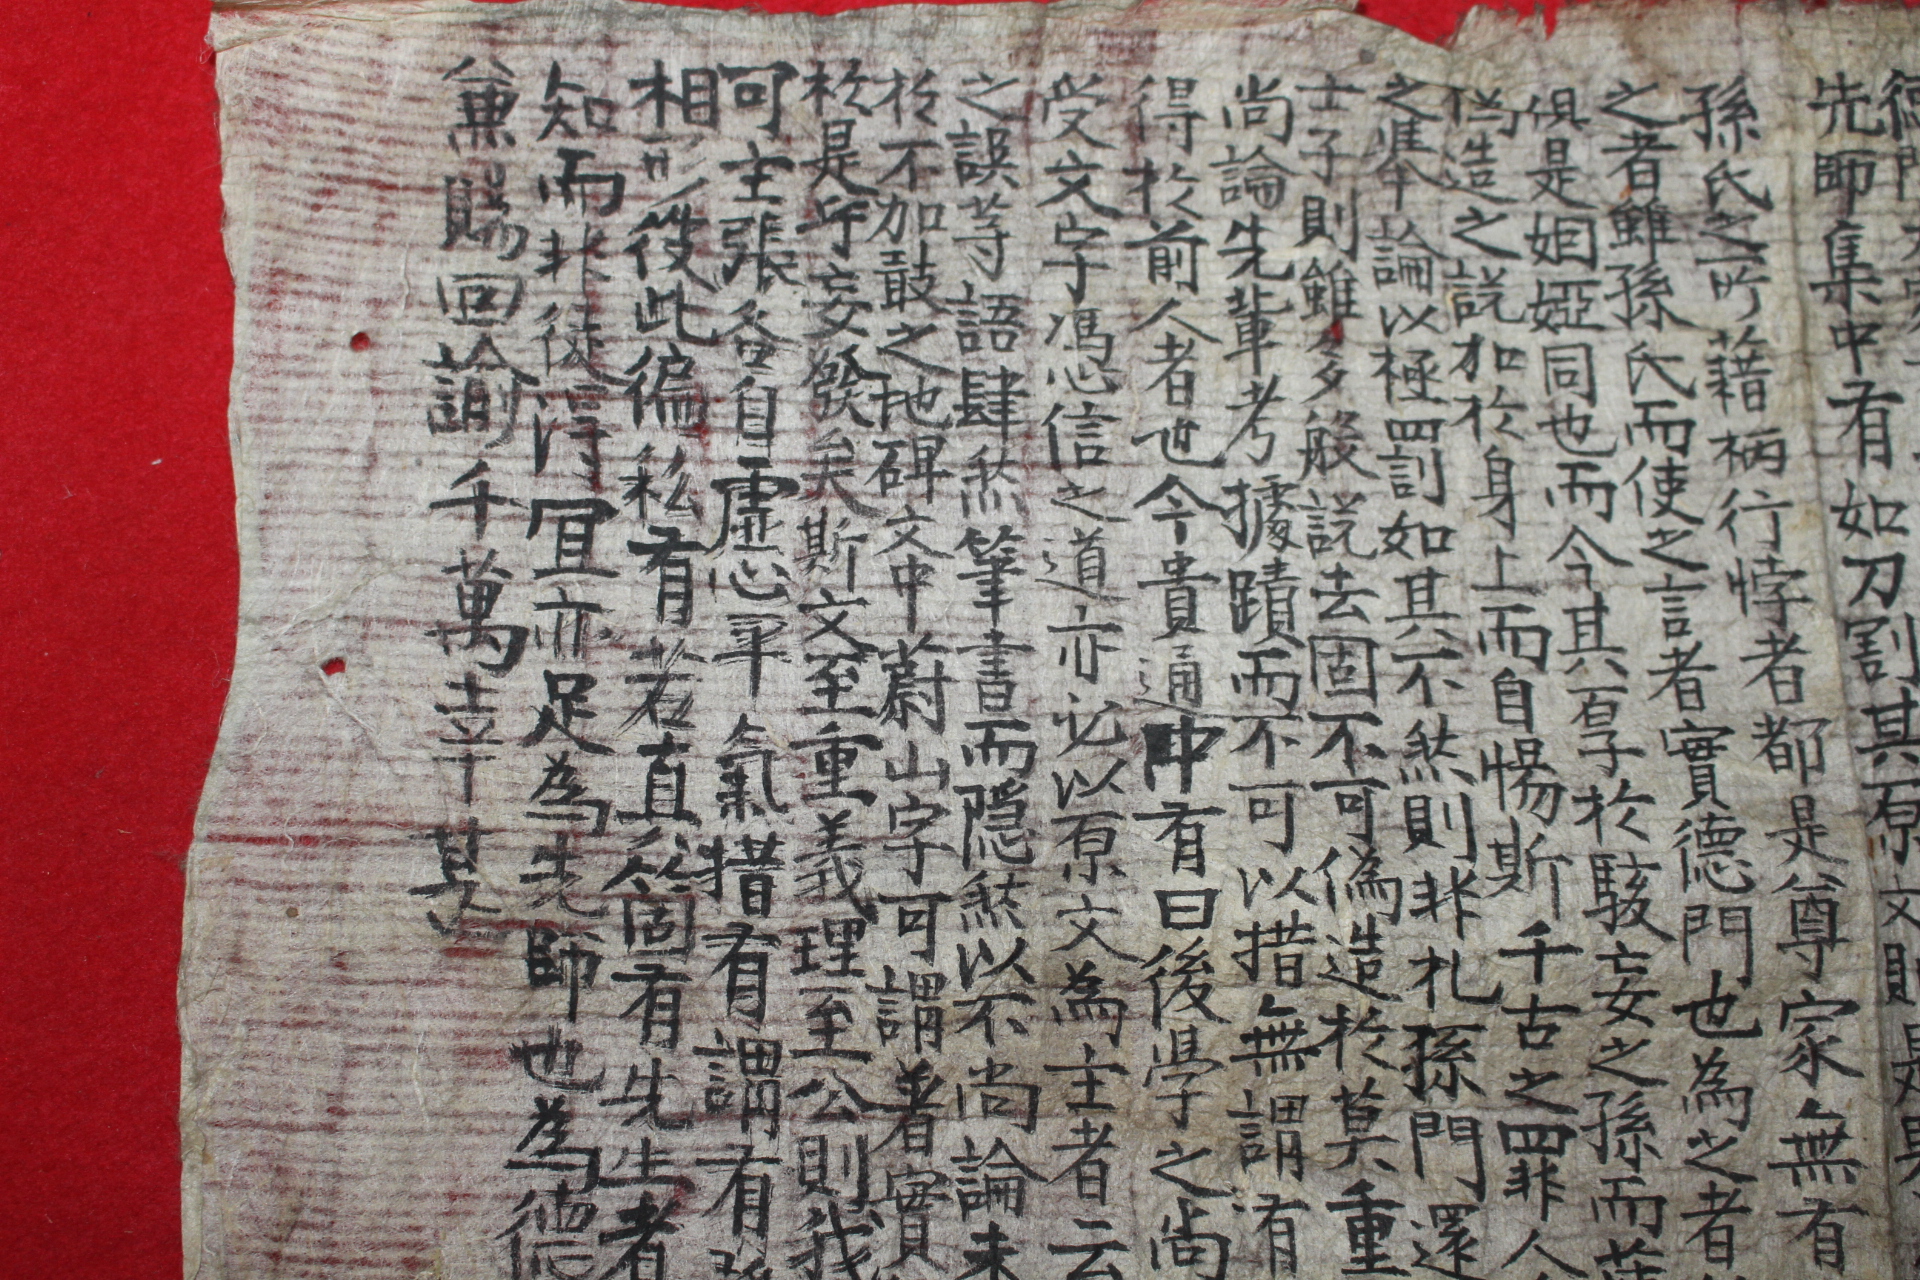 德門
先師集中有如刀割其原文則是
孫氏之所藉柄行悖者都是尊家無有
之者雖孫氏而使之言者實德門也為之者
俱是姻婭同也而今其孫於駭妄之孫而
偽造之說加於身上而自惕斯千古之罪人
之準論以極罰如其不然則非札孫門還
士子則雖多般說去固不可偽造於莫重
尚論先輩考據蹟而不可以措無謂有
得於前人者也今貴通中有曰後學之尚
受文字憑信之道亦必以原文為主者云
之誤等語肆然筆書而隱然以不尚論未
於不加敲之地碑文中蔚山字可謂着實
於是乎妄發矣斯文至重義理至公則我
可主張各自虛心平氣措有謂有
相彼此徧私有若直箇有先生者
知而非徒淂冝亦足為先師也為德
兼賜回諭千萬幸甚